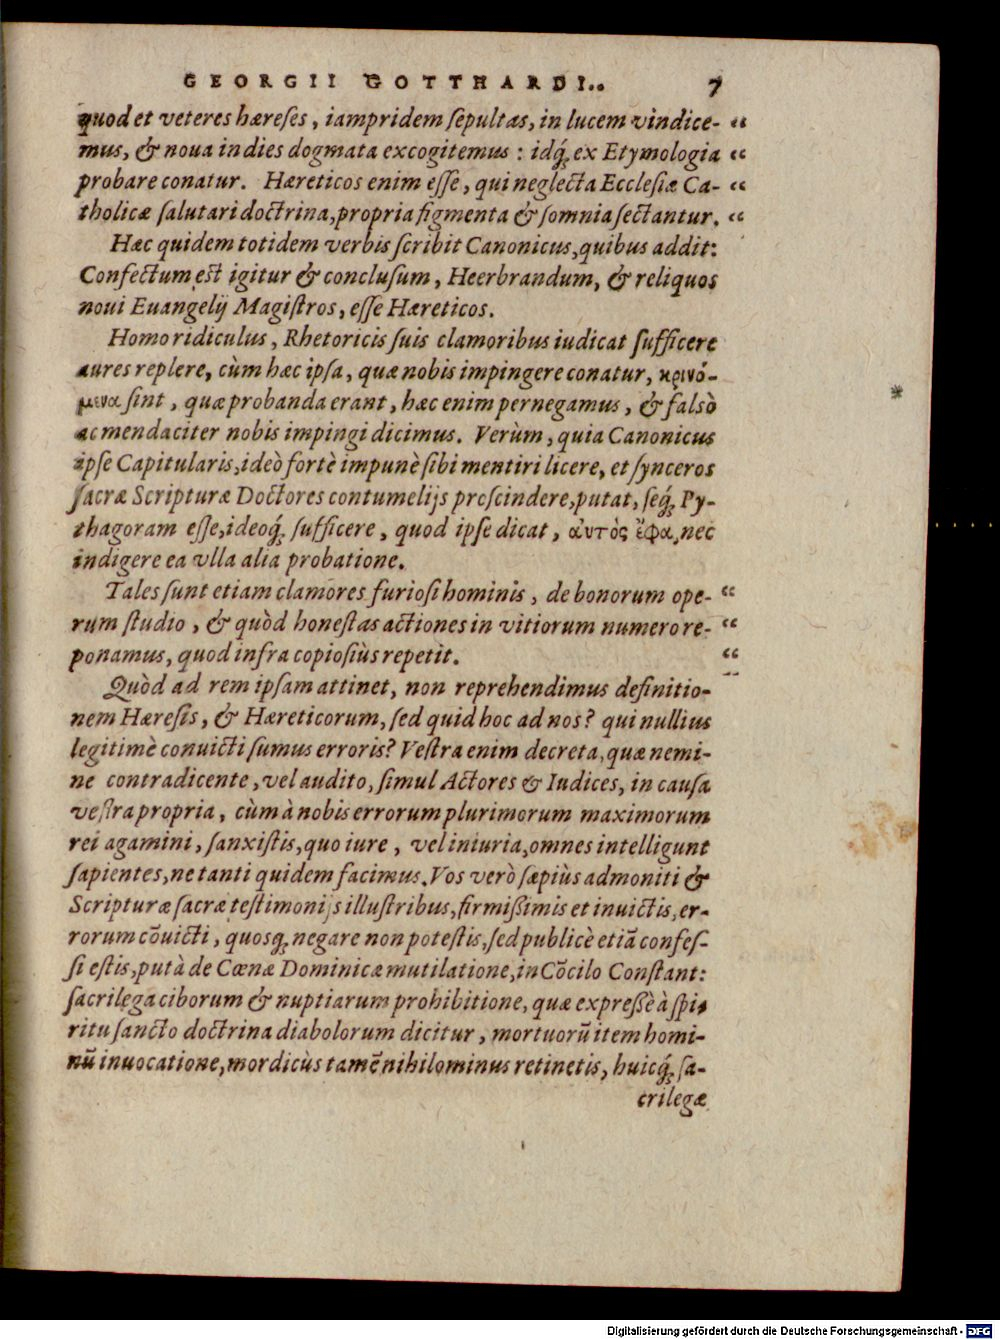 GEORGII GOTTHARDI.. 7
quod et veteres hæreſes, iampridem ſepultas, in lucem vindice- “
mus, & noua in dies dogmata excogitemus: idq́; ex Etymologia “
probare conatur. Hæreticos enim eſſe, qui neglecta Eccleſiæ Ca- “
tholicæ ſalutari doctrina, propria figmenta & ſomnia ſectantur. “
Hæc quidem totidem verbis ſcribit Canonicus, quibus addit:
Confectum eſt igitur & concluſum, Heerbrandum, & reliquos
noui Euangelij Magiſtros, eſſe Hæreticos.
Homo ridiculus, Rhetoricis ſuis clamoribus iudicat ſufficere
aures replere, cùm hæc ipſa, quæ nobis impingere conatur, κρινό-
μενα ſint, quæ probanda erant, hæc enim pernegamus, & falsò
ac mendaciter nobis impingi dicimus. Verùm, quia Canonicus
ipſe Capitularis, ideò fortè impunè ſibi mentiri licere, et ſynceros
ſacræ Scripturæ Doctores contumelijs proſcindere, putat, ſeq́; Py-
thagoram eſſe, ideoq́; ſufficere, quod ipſe dicat, αὐτὸς ἔφα, nec
indigere ea vlla alia probatione.
Tales ſunt etiam clamores furioſi hominis, de bonorum ope- “
rum ſtudio, & quòd honeſtas actiones in vitiorum numero re- “
ponamus, quod infra copioſiùs repetit. “
Quòd ad rem ipſam attinet, non reprehendimus definitio-
nem Hæreſis, & Hæreticorum, ſed quid hoc ad nos? qui nullius
legitimè conuicti ſumus erroris? Veſtra enim decreta, quæ nemi-
ne contradicente, vel audito, ſimul Actores & Iudices, in cauſa
veſtra propria, cùm à nobis errorum plurimorum maximorum
rei agamini, ſanxiſtis, quo iure, vel iniuria, omnes intelligunt
ſapientes, ne tanti quidem facimus. Vos verò ſæpiùs admoniti &
Scripturæ ſacræ teſtimonijs illuſtribus, firmißimis et inuictis, er-
rorum cõuicti, quosq́; negare non poteſtis, ſed publicè etiã confeſ-
ſi eſtis, putà de Cœnæ Dominicæ mutilatione, in Cõcilo Conſtant:
ſacrilega ciborum & nuptiarum prohibitione, quæ expreßè à ſpi-
ritu ſancto doctrina diabolorum dicitur, mortuorũ item homi-
nũ inuocatione, mordicùs tamẽ nihilominus retinetis, huicq́; ſa-
crilegæ
Digitalisierung gefördert durch die Deutsche Forschungsgemeinschaft - DFG